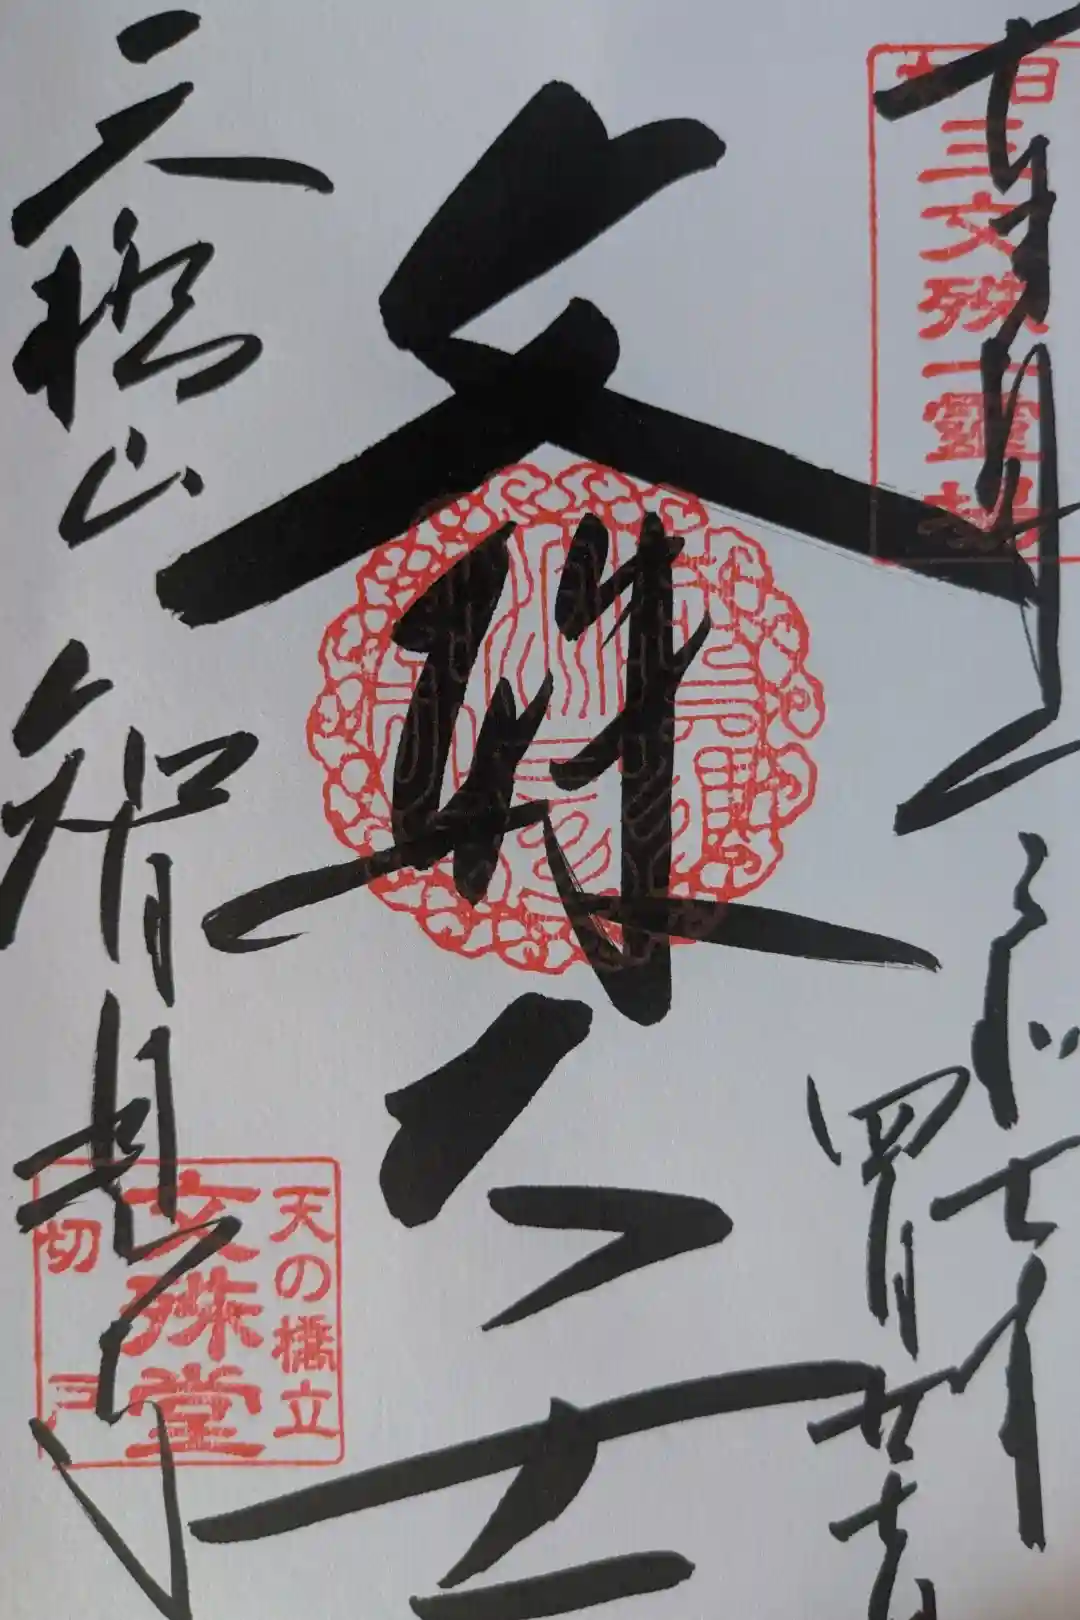 奉拝
日本三文殊一霊場
令和七年
四月廿七日
文殊大士
天橋山
智恩寺
天の橋立
文殊堂
切戸